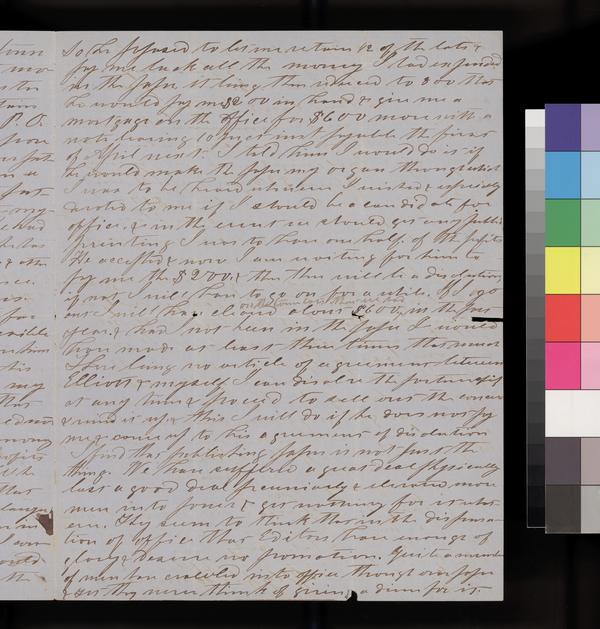 So he proposed to let me retain 1/2 of the lots &
pay me back all the money I had expended
in the paper it being then reduced to 800 that
he would pay me $200 in hand & give me a
mortgage on the office for $600 more with a
note bearing 10 per cent payable the first
of April next. I told him I would do it if
he would make the paper my organ through which
I was to be heard whenever I wished & especially
devoted to me if I should be a candidate for
office, & in the event we should get any public
printing I was to have one half of the profits
He accepted & now I am waiting for him to
pay me the $200, & then there will be a dissolution
if not I will have to go on for a while. If I go
out I will have cleared about $600, in the past
year, & had I not been in the paper I would
have made at least three times that much
There being no article of agreement between
Elliott & myself I can dissolve the partnership
at any time & proceed to sell out the concern
& wind it up, & this I will do if he does not pay
me & come up to his agreement of dissolution
I find that publishing papers is not just the
thing. We have suffered a great deal physically
lost a good deal pecuniarily & elevated more
men into power & get nothing for it what
ever. They seem to think that in the dispensa-
tion of office that Editors have enough of
glory & deserve no promotion. Quite a number
of men have crawled into office through our paper
& yet they never think of giving a dime for it.